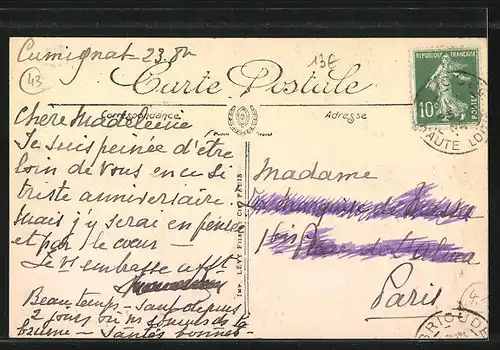 Cumignat - 23
13€
43
Carte Postale
Correspondance
Adresse
REPUBLIQUE FRANÇAISE
10c
POSTES
HAUTE LOIRE
Chère Madeleine
Je suis peinée d'être
loin de vous en ce si
triste anniversaire.
mais j'y serai en pensée
et par le cœur -
Je vs embrasse afft
Madame
1bis Place de l'Alma
Paris
IMP. LÉVY FILS ET CIE PARIS
Beau temps - sauf depuis
2 jours où ns sommes ds la
brume - Santés bonnes -
BRIOUDE